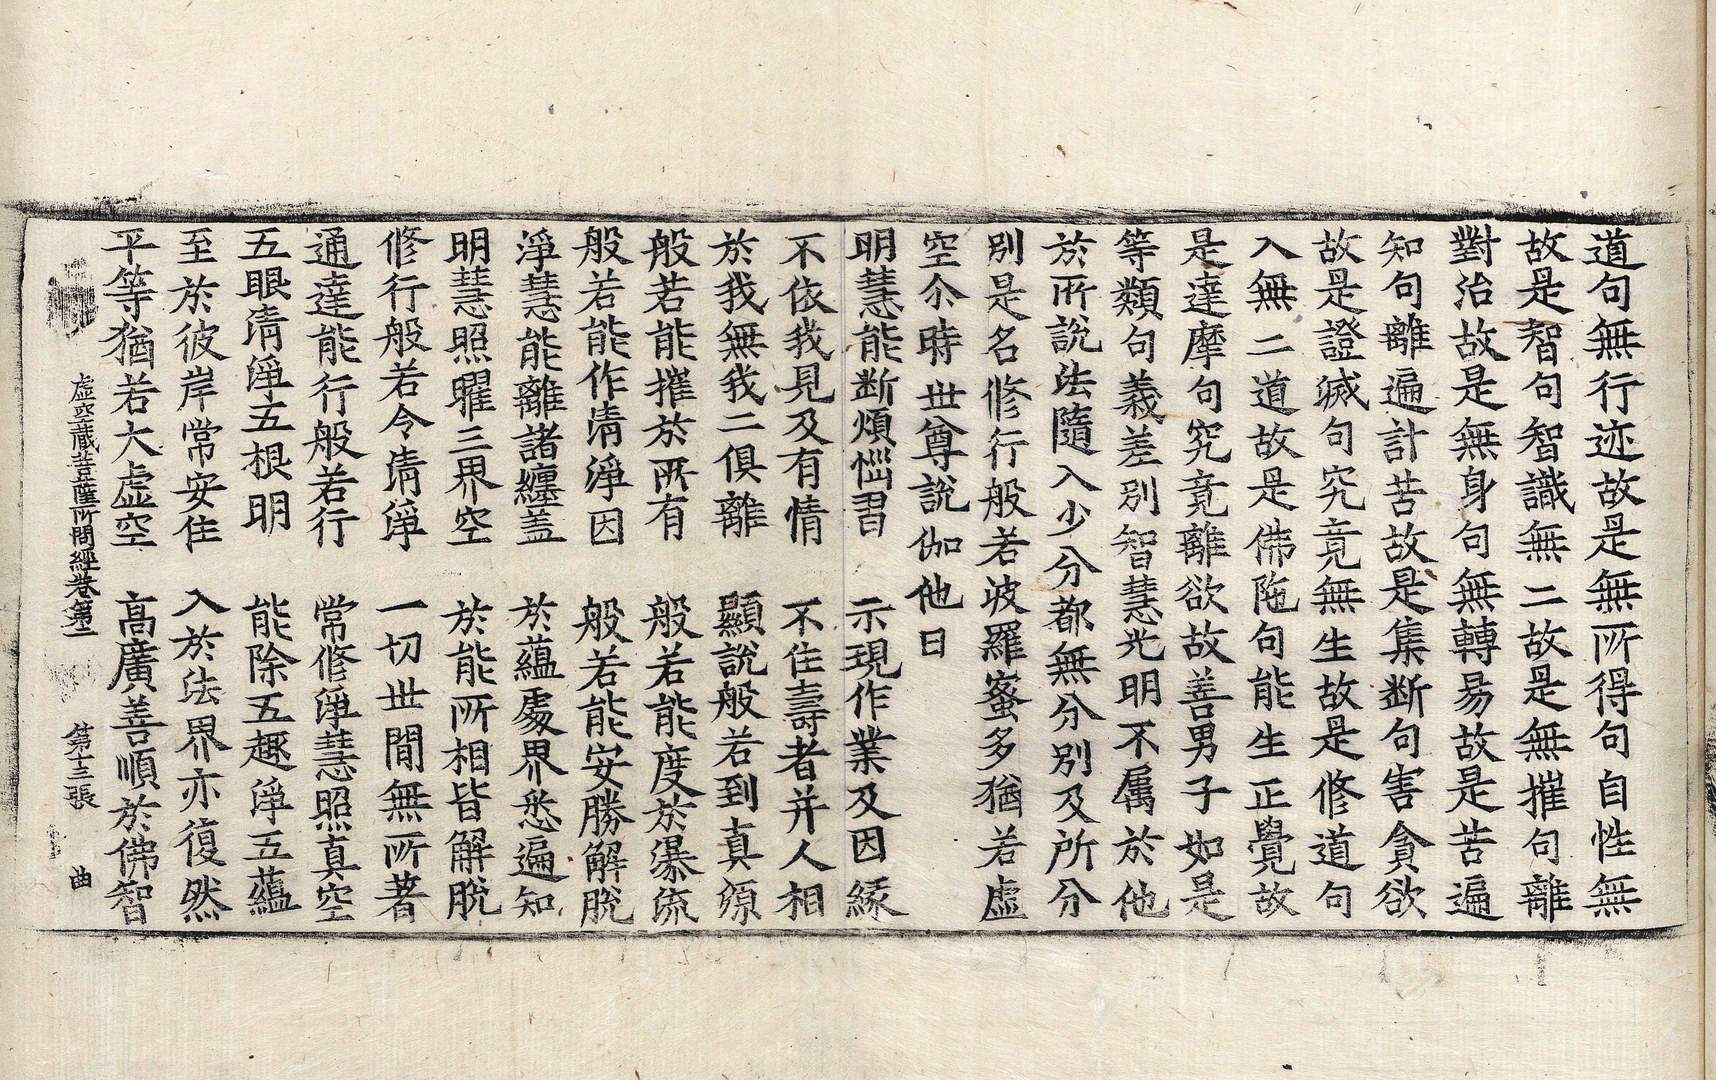 道句無行迹故是無所得句自性無
故是智句智識無二故是無摧句離
對治故是無身句無轉易故是苦遍
知句離遍計苦故是集断句害貪欲
故是證滅句究竟無生故是修道句
入無二道故是佛陁句能生正覺故
是達摩句究竟離欲故善男子如是
等類句義差別智慧光明不属於他
於所說法隨入少分都無分別及所分
別是名修行般若波羅蜜多猶若虛
空尒時世尊說伽他曰
明慧能断煩惱習　示現作業及因緣
不依我見及有情　不住壽者并人相
於我無我二俱離　顯說般若到真源
般若能摧於所有　般若能度於瀑流
般若能作清淨因　般若能安勝解脫
淨慧能離諸纏盖　於蘊處界悉遍知
明慧照曜三界空　於能所相皆解脫
修行般若令清淨　一切世間無所著
通達能行般若行　常修淨慧照真空
五眼清淨五根明　能除五趣淨五蘊
至於彼岸常安住　入於法界亦復然
平等猶若大虛空　高廣善順於佛智
虛空蔵菩薩所問經卷第二　第十三張　曲